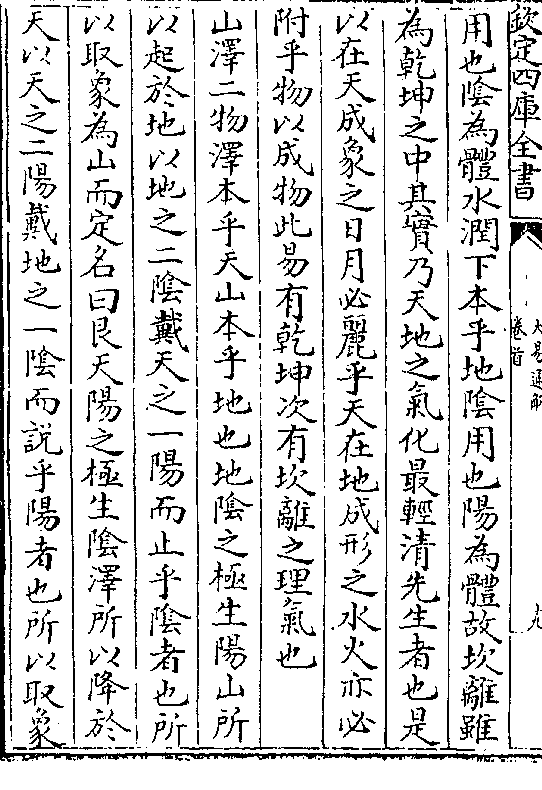 欽定四庫全書
大易通解
卷首
十九
用也陰為體水潤下本乎地陰用也陽為體故坎離雖
為乾坤之中其實乃天地之氣化最輕清先生者也是
以在天成象之日月必麗乎天在地成形之水火亦必
附乎物以成物此易有乾坤次有坎離之理氣也
山澤二物澤本乎天山本乎地也地陰之極生陽山所
以起於地以地之二陰戴天之一陽而止乎陰者也所
以取象為山而定名曰艮天陽之極生陰澤所以降於
天以天之二陽戴地之一陰而說乎陽者也所以取象